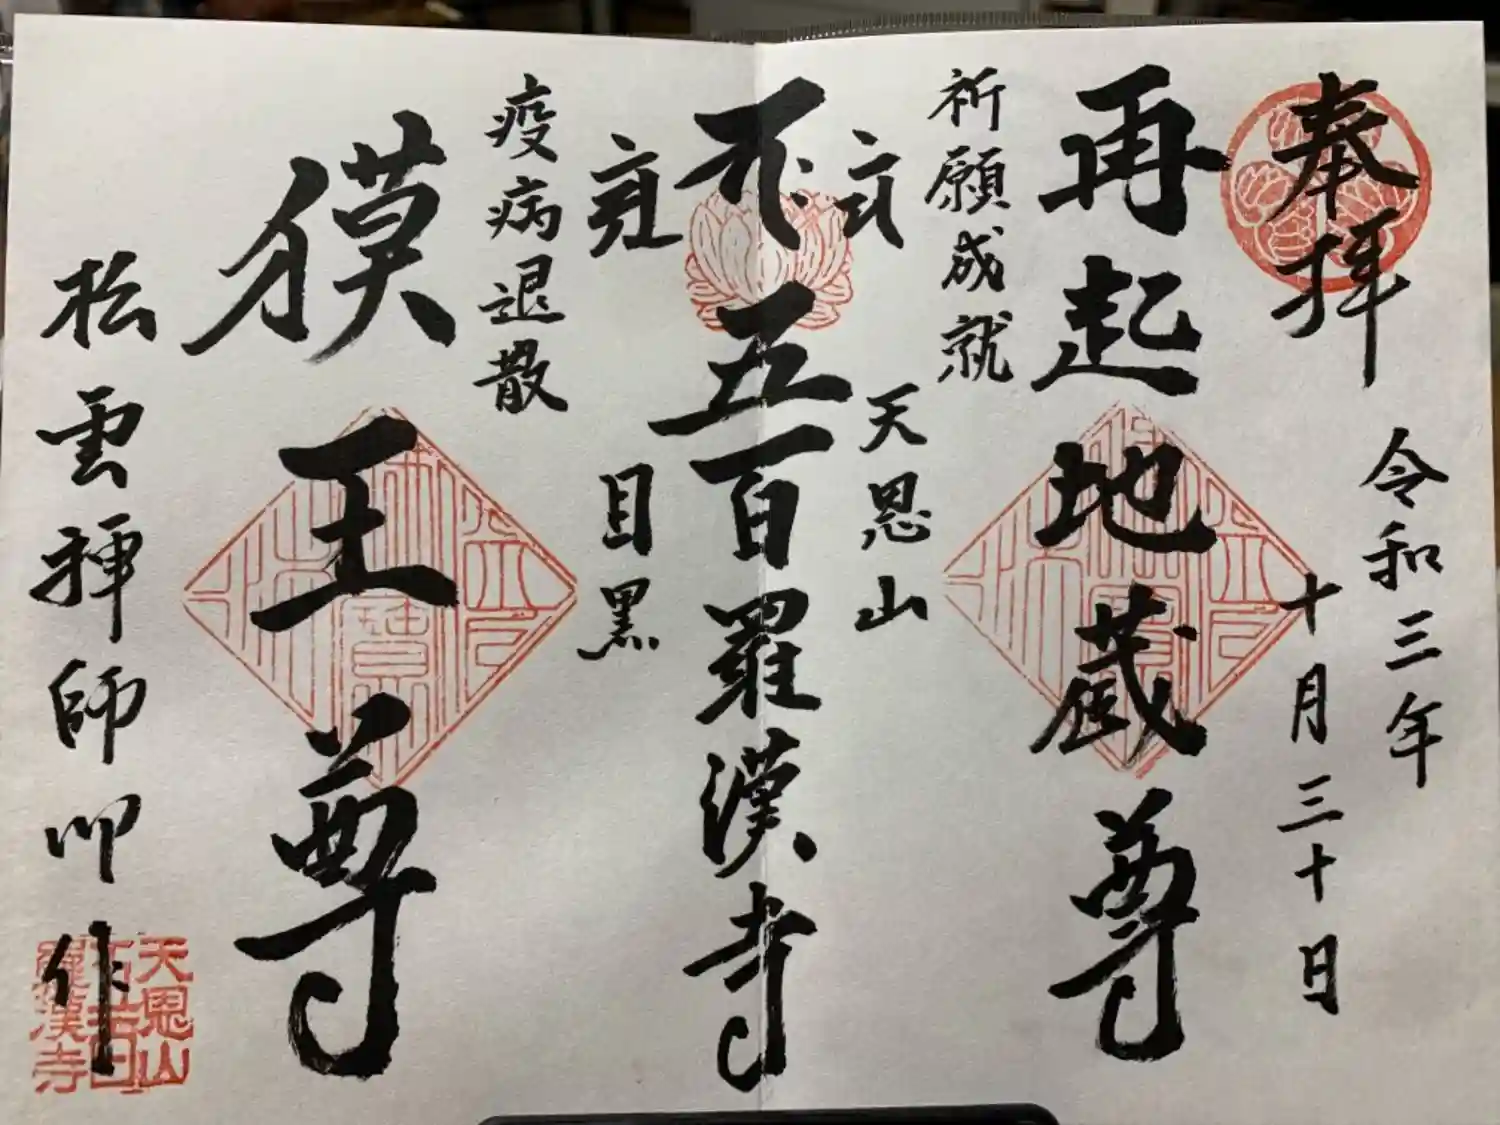 奉拝
令和三年
十月三十日
再起地蔵尊
祈願成就
天恩山
五百羅漢寺
目黒
疫病退散
獏王尊
松雲禅師御作
天恩山
五百
羅漢寺